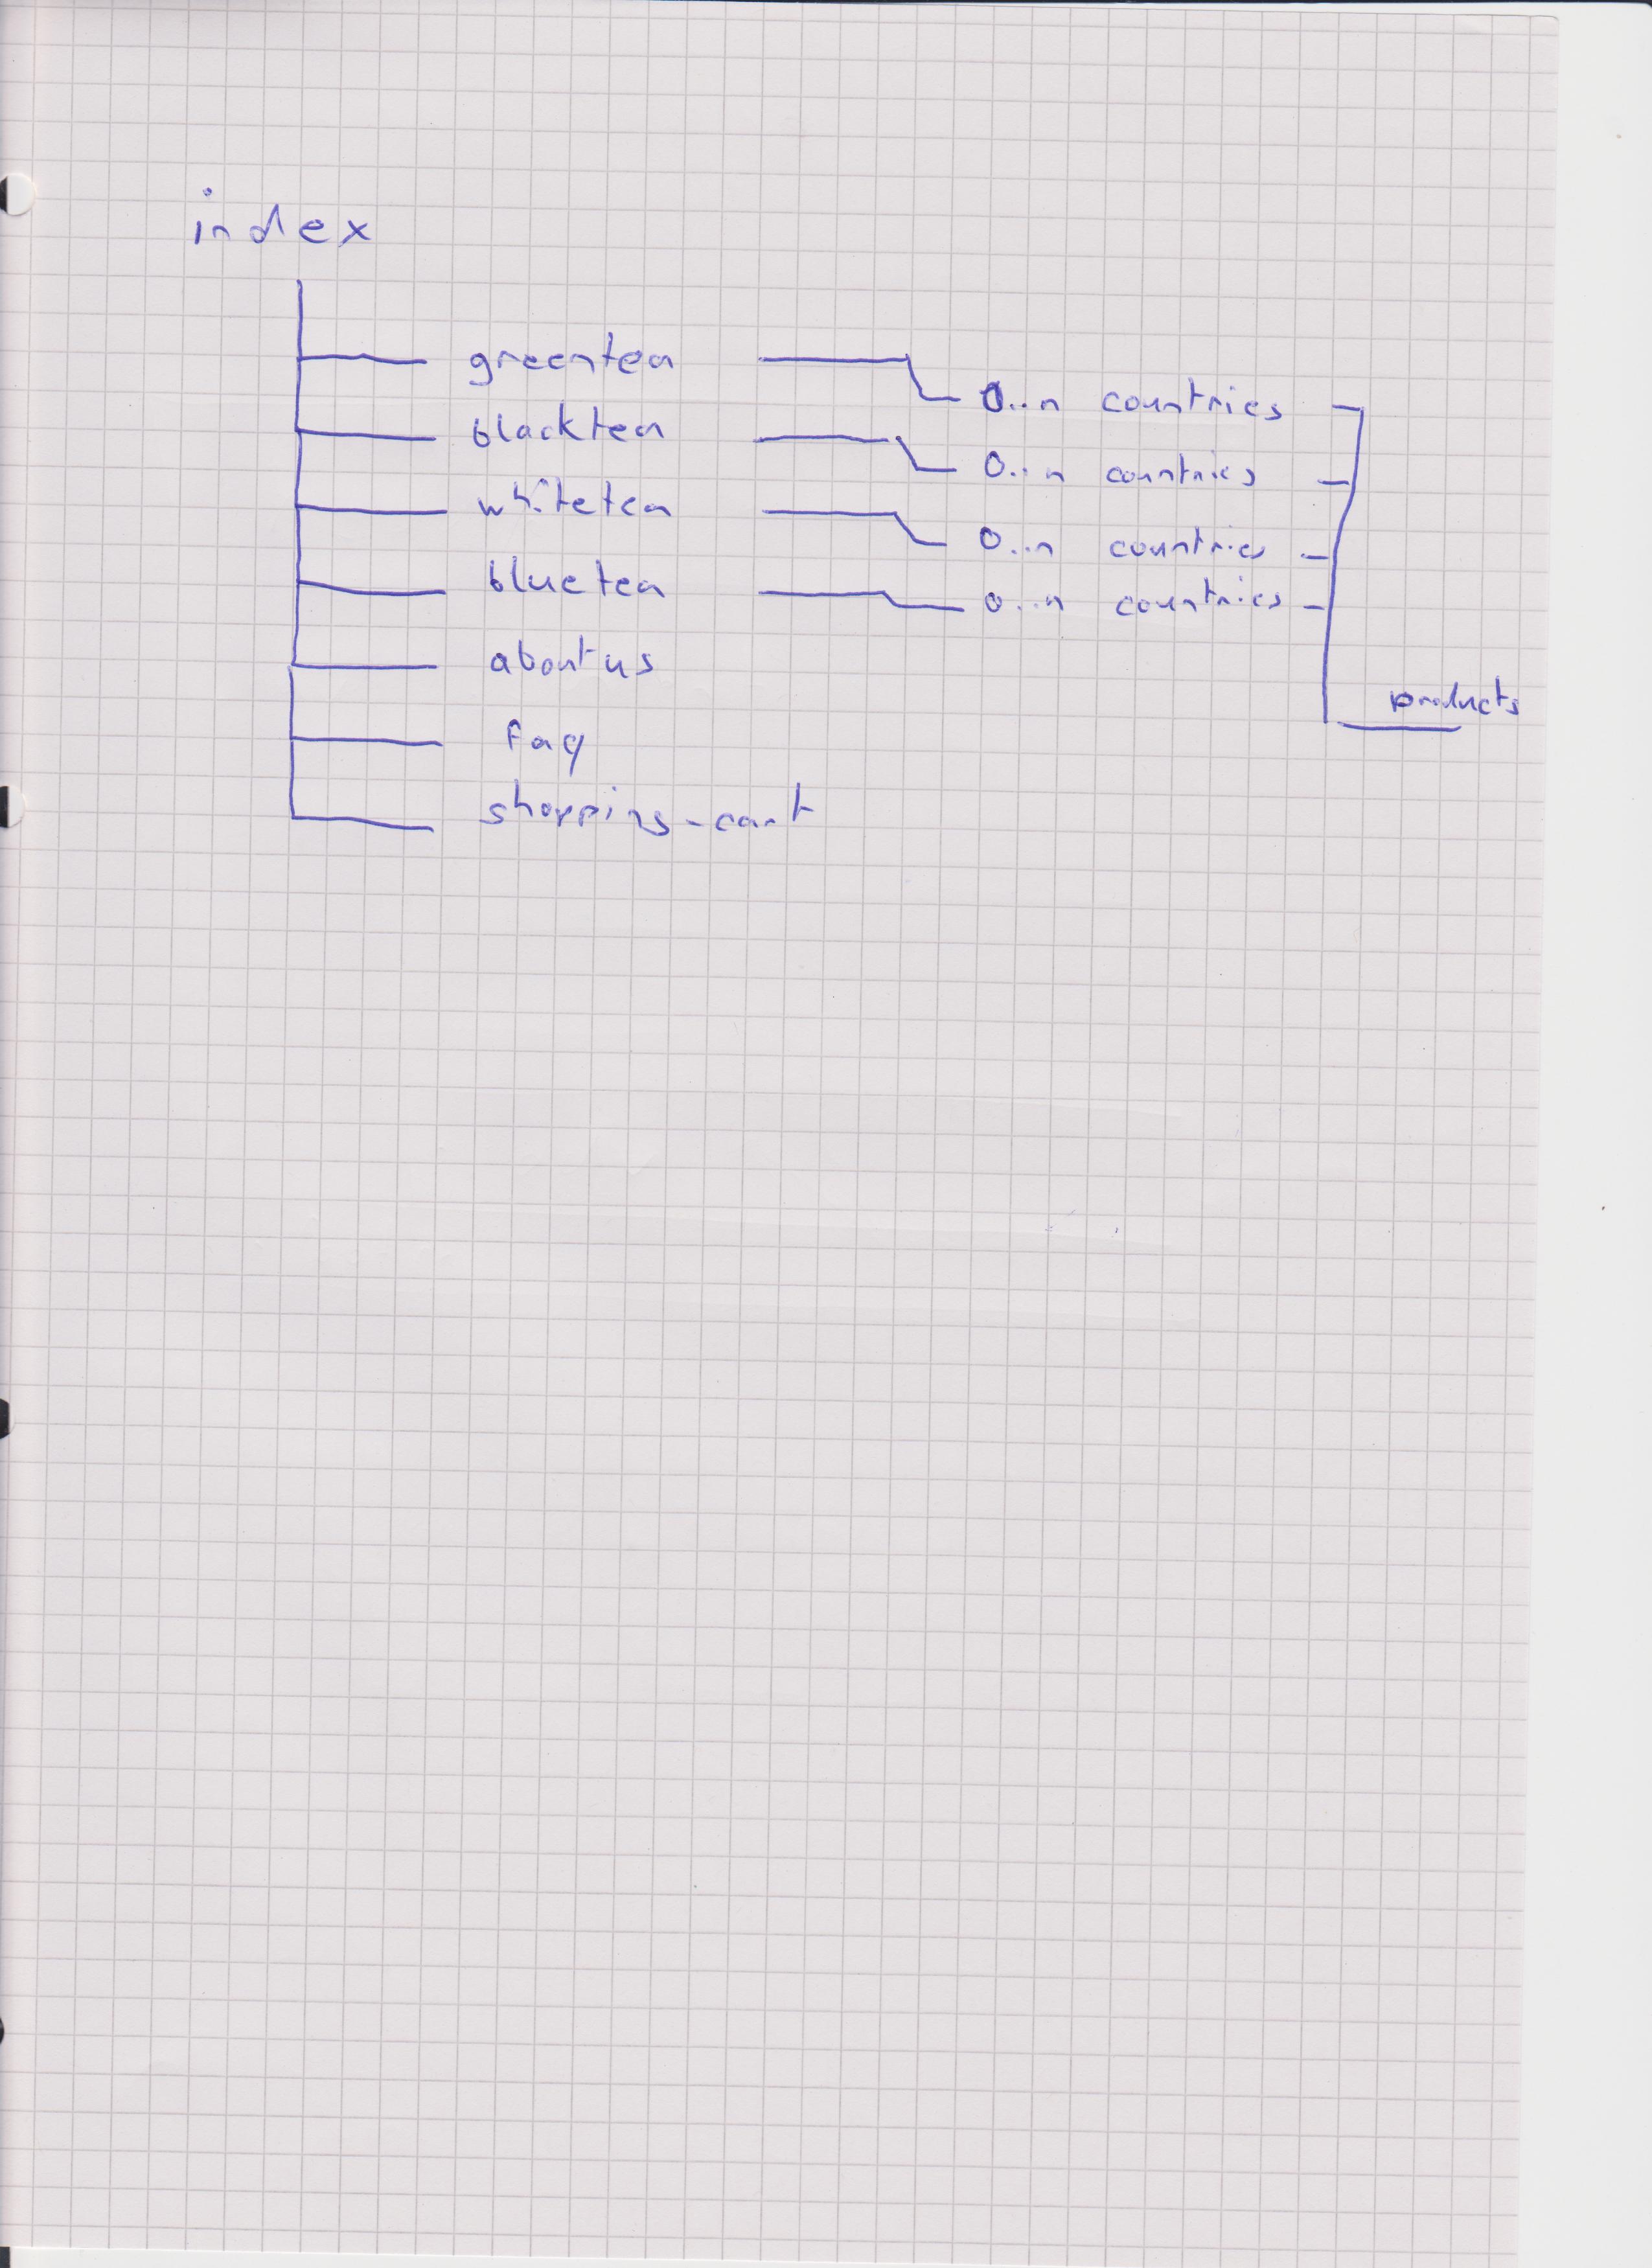 index
greentea
0..n countries
blacktea
0..n countries
whitetea
0..n countries
bluetea
0..n countries
about us
products
faq
shopping-cart